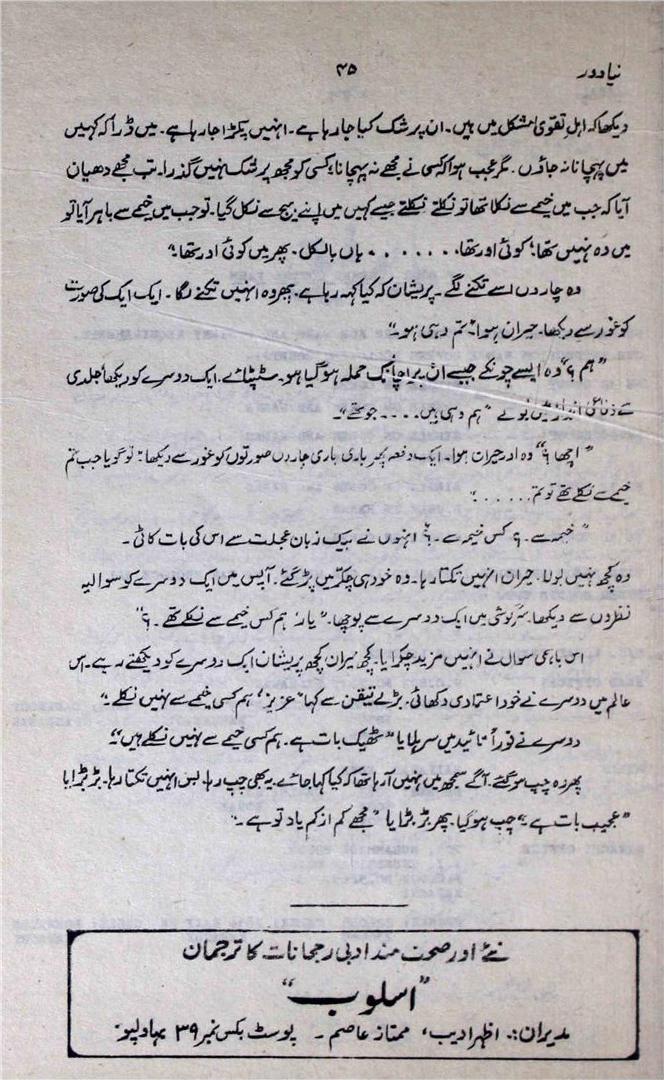 نیا دور
۴۵
دیکھا کہ اہلِ تقویٰ مشکل میں ہیں۔ ان پر شک کیا جا رہا ہے۔ انہیں پکڑا جا رہا ہے۔ میں ڈرا کہ کہیں
میں پہچانا نہ جاؤں۔ مگر عجب ہوا کہ کسی نے مجھے نہ پہچانا؛ کسی کو مجھ پر شک نہیں گذرا۔ تب مجھے دھیان
آیا کہ جب میں خیمے سے نکلا تھا تو نکلتے نکلتے جیسے کہیں میں اپنے بیچ سے نکل گیا۔ تو جب میں خیمے سے باہر آیا تو
میں وہ نہیں تھا؛ کوئی اور تھا ....... ہاں بالکل۔ پھر میں کوئی اور تھا۔"
وہ چاروں اسے تکنے لگے۔ پریشان کہ کیا کہہ رہا ہے۔ پھر وہ انہیں تکنے لگا۔ ایک ایک کی صورت
کو غور سے دیکھا۔ حیران ہوا۔ "تم وہی ہو۔"
"ہم؟" وہ ایسے چونکے جیسے ان پر اچانک حملہ ہو گیا ہو۔ سٹپٹائے۔ ایک دوسرے کو دیکھا، جلدی
سے دفاعی انداز میں بولے "ہم وہی ہیں .... جو تھے"۔
"اچھا؟" وہ اور حیران ہوا۔ ایک دفعہ پھر باری باری چاروں صورتوں کو غور سے دیکھا: "تو گویا جب تم
خیمے سے نکلے تھے تو تم ......"
"خیمہ سے۔؟ کس خیمہ سے۔؟" انہوں نے بیک زبان عجلت سے اس کی بات کاٹی۔
وہ کچھ نہیں بولا۔ حیران انہیں تکتا رہا۔ وہ خود ہی چکر میں پڑ گئے۔ آپس میں ایک دوسرے کو سوالیہ
نظروں سے دیکھا۔ سرگوشی میں ایک دوسرے سے پوچھا۔ "یار، ہم کس خیمے سے نکلے تھے۔؟"
اس باہمی سوال نے انہیں مزید چکرا یا۔ کچھ حیران کچھ پریشان ایک دوسرے کو دیکھتے رہے۔ اس
عالم میں دوسرے نے خود اعتمادی دکھائی۔ بڑے تیقن سے کہا "عزیز، ہم کسی خیمے سے نہیں نکلے۔"
دوسرے نے فوراً تائید میں سر ہلایا "ٹھیک بات ہے۔ ہم کسی خیمے سے نہیں نکلے ہیں"۔
پھر وہ چپ ہو گئے۔ آگے سمجھ میں نہیں آ رہا تھا کہ کیا کہا جائے۔ یہ بھی چپ رہا۔ بس انہیں تکتا رہا۔ بڑبڑایا
"عجیب بات ہے۔" چپ ہو گیا۔ پھر بڑبڑایا "مجھے کم از کم یاد تو ہے۔"
نئے اور صحت مند ادبی رجحانات کا ترجمان
"اسلوب"
مدیران:۔ اظہر ادیب، ممتاز عاصم۔ پوسٹ بکس نمبر ۳۹ بہاولپور